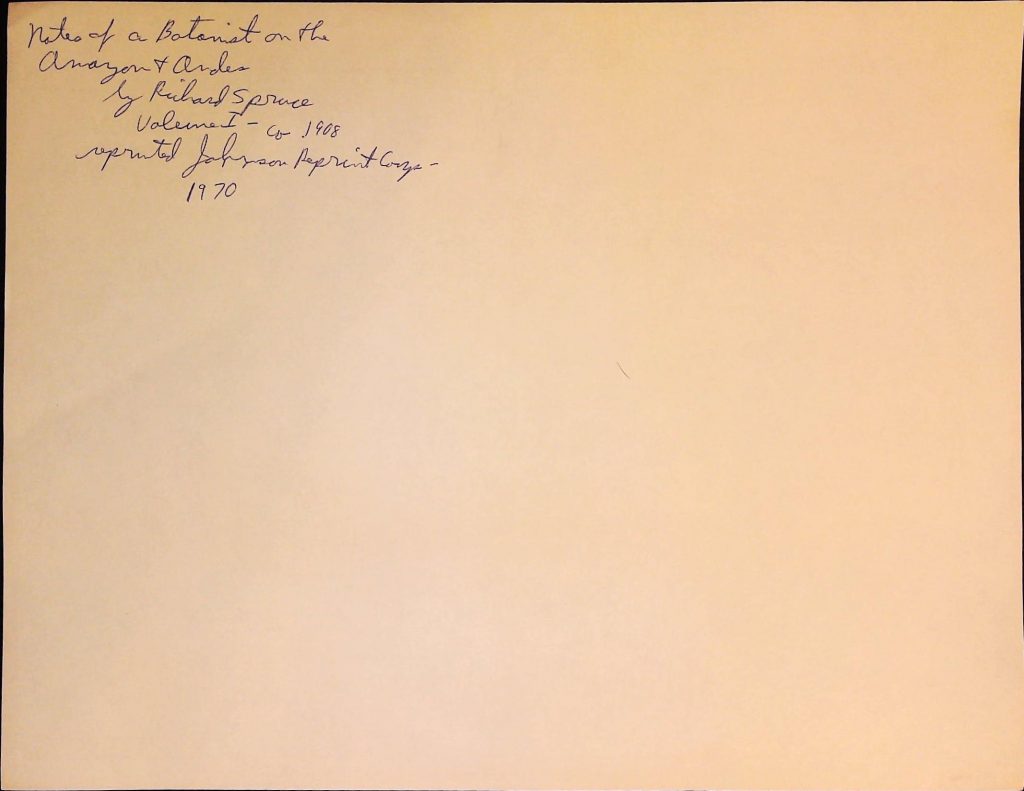 Notes of a Botanist on the
Amazon & Andes
by Richard Spruce
Volume I - co 1908
reprinted Johnson Reprint Corp -
1970